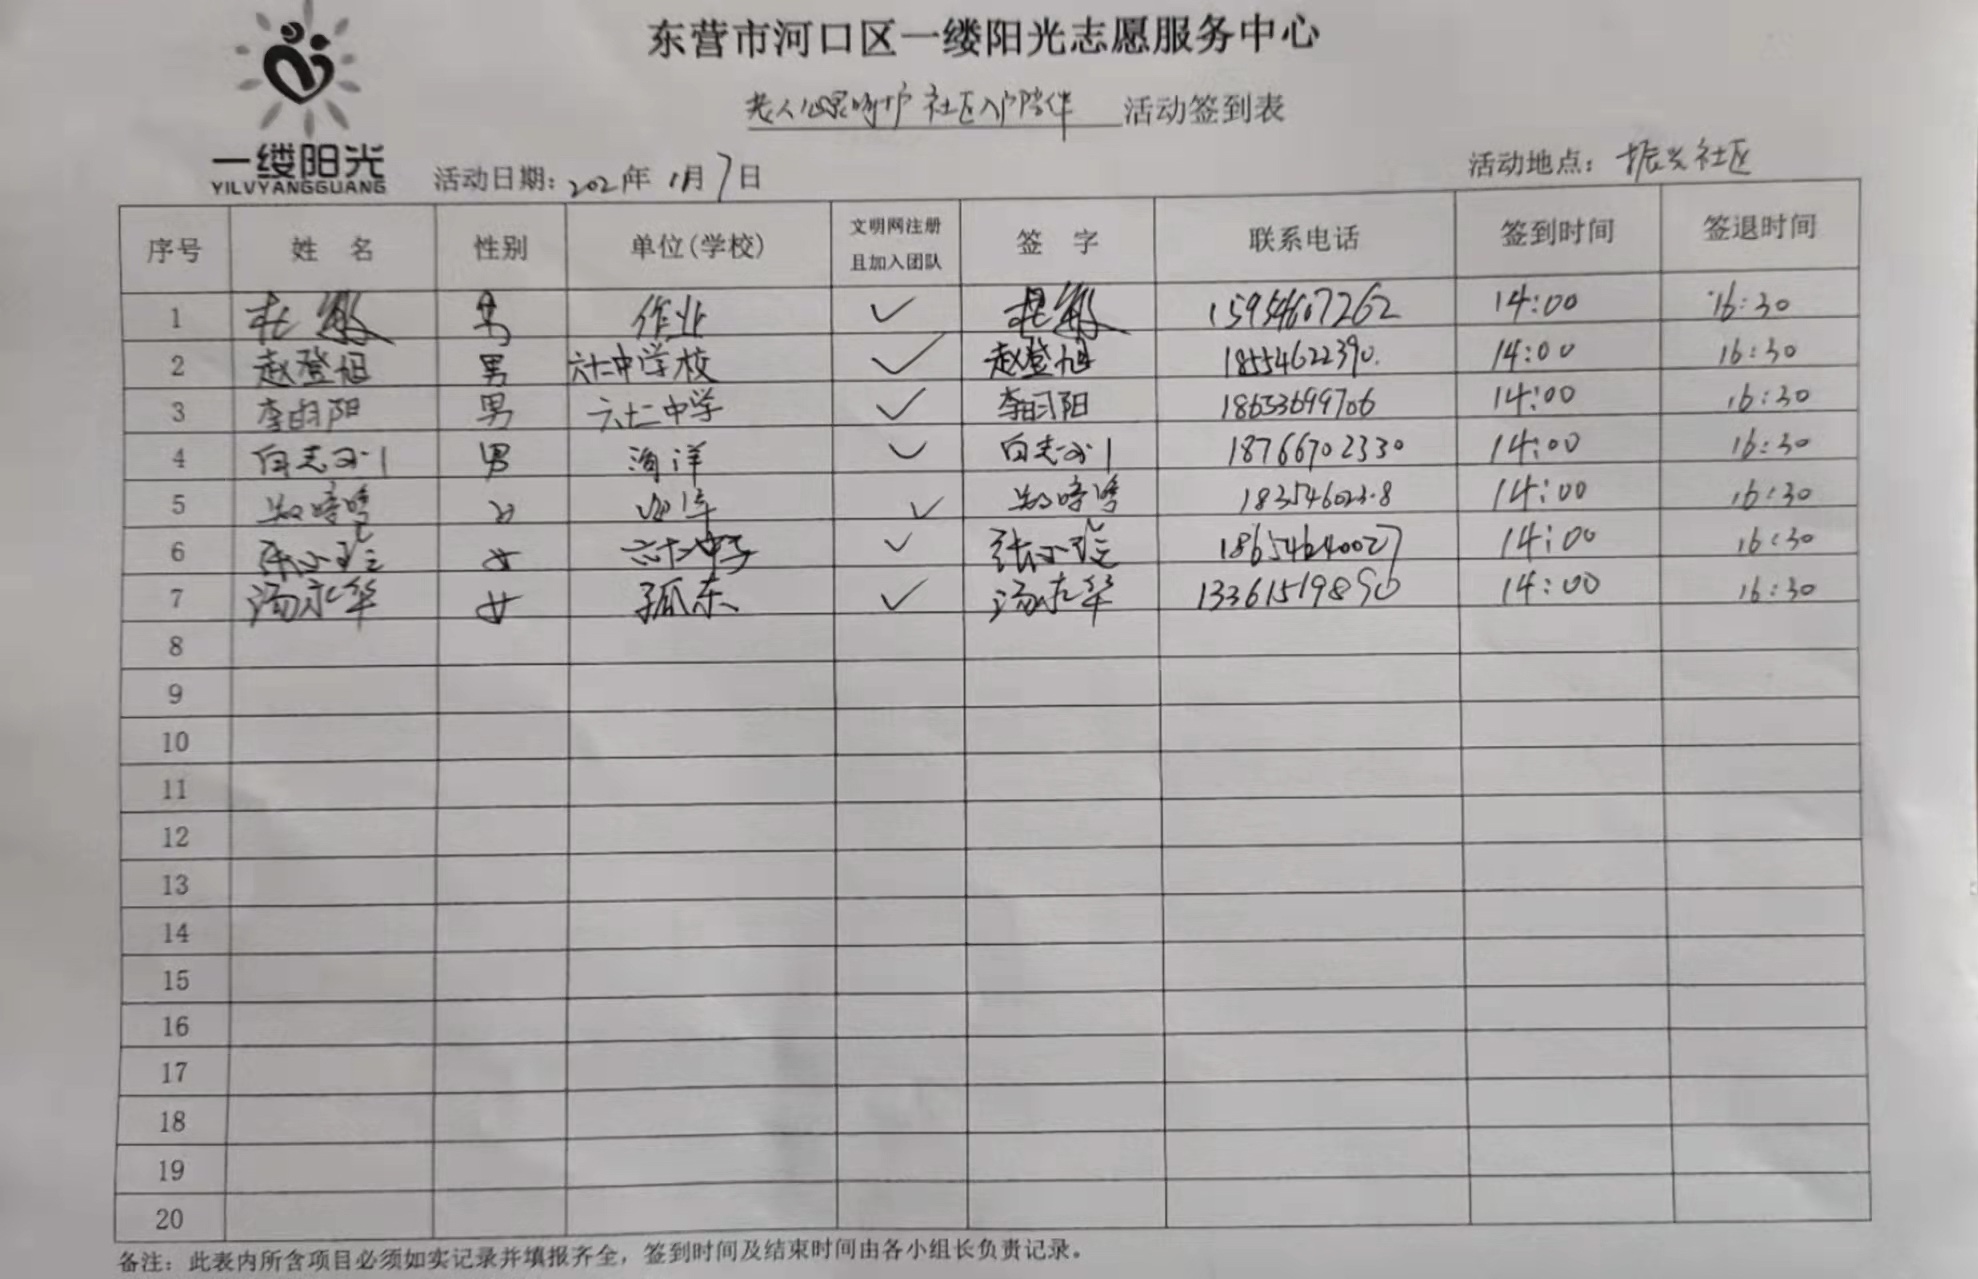 东营市河口区一缕阳光志愿服务中心
老人心灵呵护 社区入户陪伴 活动签到表
一缕阳光
YILVYANGGUANG
活动日期: 2021年 1月 7日 活动地点: 振兴社区
序号 姓 名 性别 单位(学校) 文明网注册且加入团队 签 字 联系电话 签到时间 签退时间
1 杜 男 作业 ✓ 杜 15954607262 14:00 16:30
2 赵登旭 男 六十二中学校 ✓ 赵登旭 18554622390. 14:00 16:30
3 李昀阳 男 六十二中学 ✓ 李昀阳 18653699706 14:00 16:30
4 向志 男 海洋 ✓ 向志 18766702330 14:00 16:30
5 女 ✓ 14:00 16:30
6 张 女 六十二中学 ✓ 张 18654640027 14:00 16:30
7 汤永华 女 孤东 ✓ 汤永华 13361519890 14:00 16:30
8
9
10
11
12
13
14
15
16
17
18
19
20
备注: 此表内所含项目必须如实记录并填报齐全, 签到时间及结束时间由各小组长负责记录。